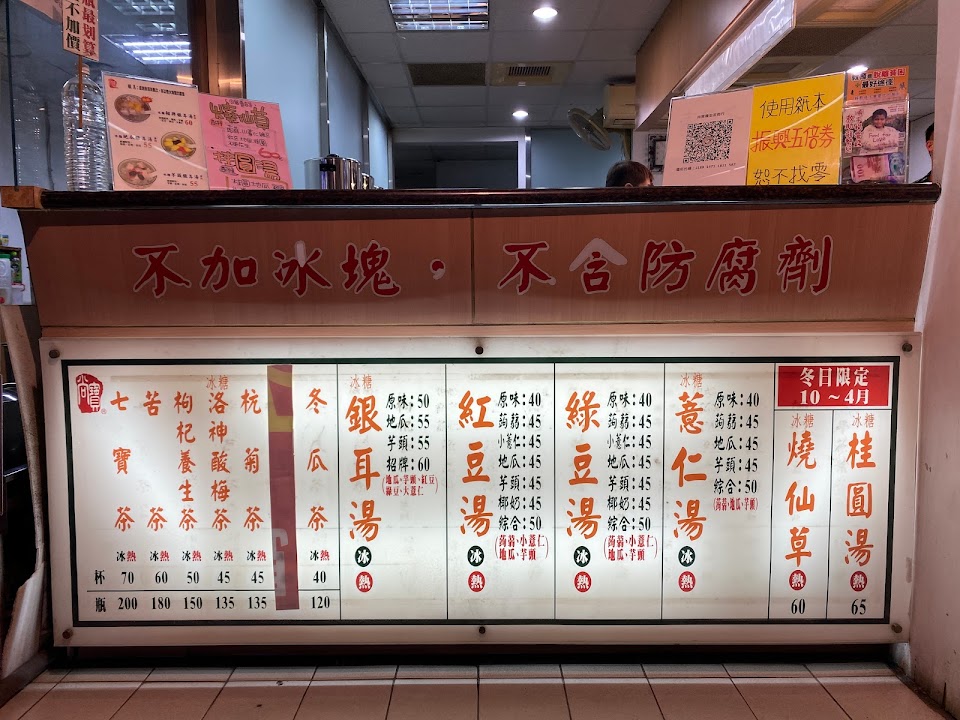 不加價
使用紙本
振興五倍券
恕不找零
不加冰塊・不含防腐劑
七寶茶
冰熱
杯 70
瓶 200
苦茶
冰熱
60
180
枸杞養生茶
冰熱
50
150
冰糖
洛神酸梅茶
冰熱
45
135
杭菊茶
冰熱
45
135
冬瓜茶
冰熱
40
120
冰糖
銀耳湯
冰
熱
原味:50
地瓜:55
芋頭:55
招牌:60
(地瓜、芋頭、紅豆
綠豆、大薏仁)
紅豆湯
冰
熱
原味:40
蒟蒻:45
小薏仁:45
地瓜:45
芋頭:45
椰奶:45
綜合:50
(蒟蒻、小薏仁
地瓜、芋頭)
綠豆湯
冰
熱
原味:40
蒟蒻:45
小薏仁:45
地瓜:45
芋頭:45
椰奶:45
綜合:50
(蒟蒻、小薏仁
地瓜、芋頭)
冰糖
薏仁湯
冰
熱
原味:40
蒟蒻:45
地瓜:45
芋頭:45
綜合:50
(蒟蒻、地瓜、芋頭)
冬日限定
10～4月
冰糖
燒仙草
熱
60
冰糖
桂圓湯
熱
65